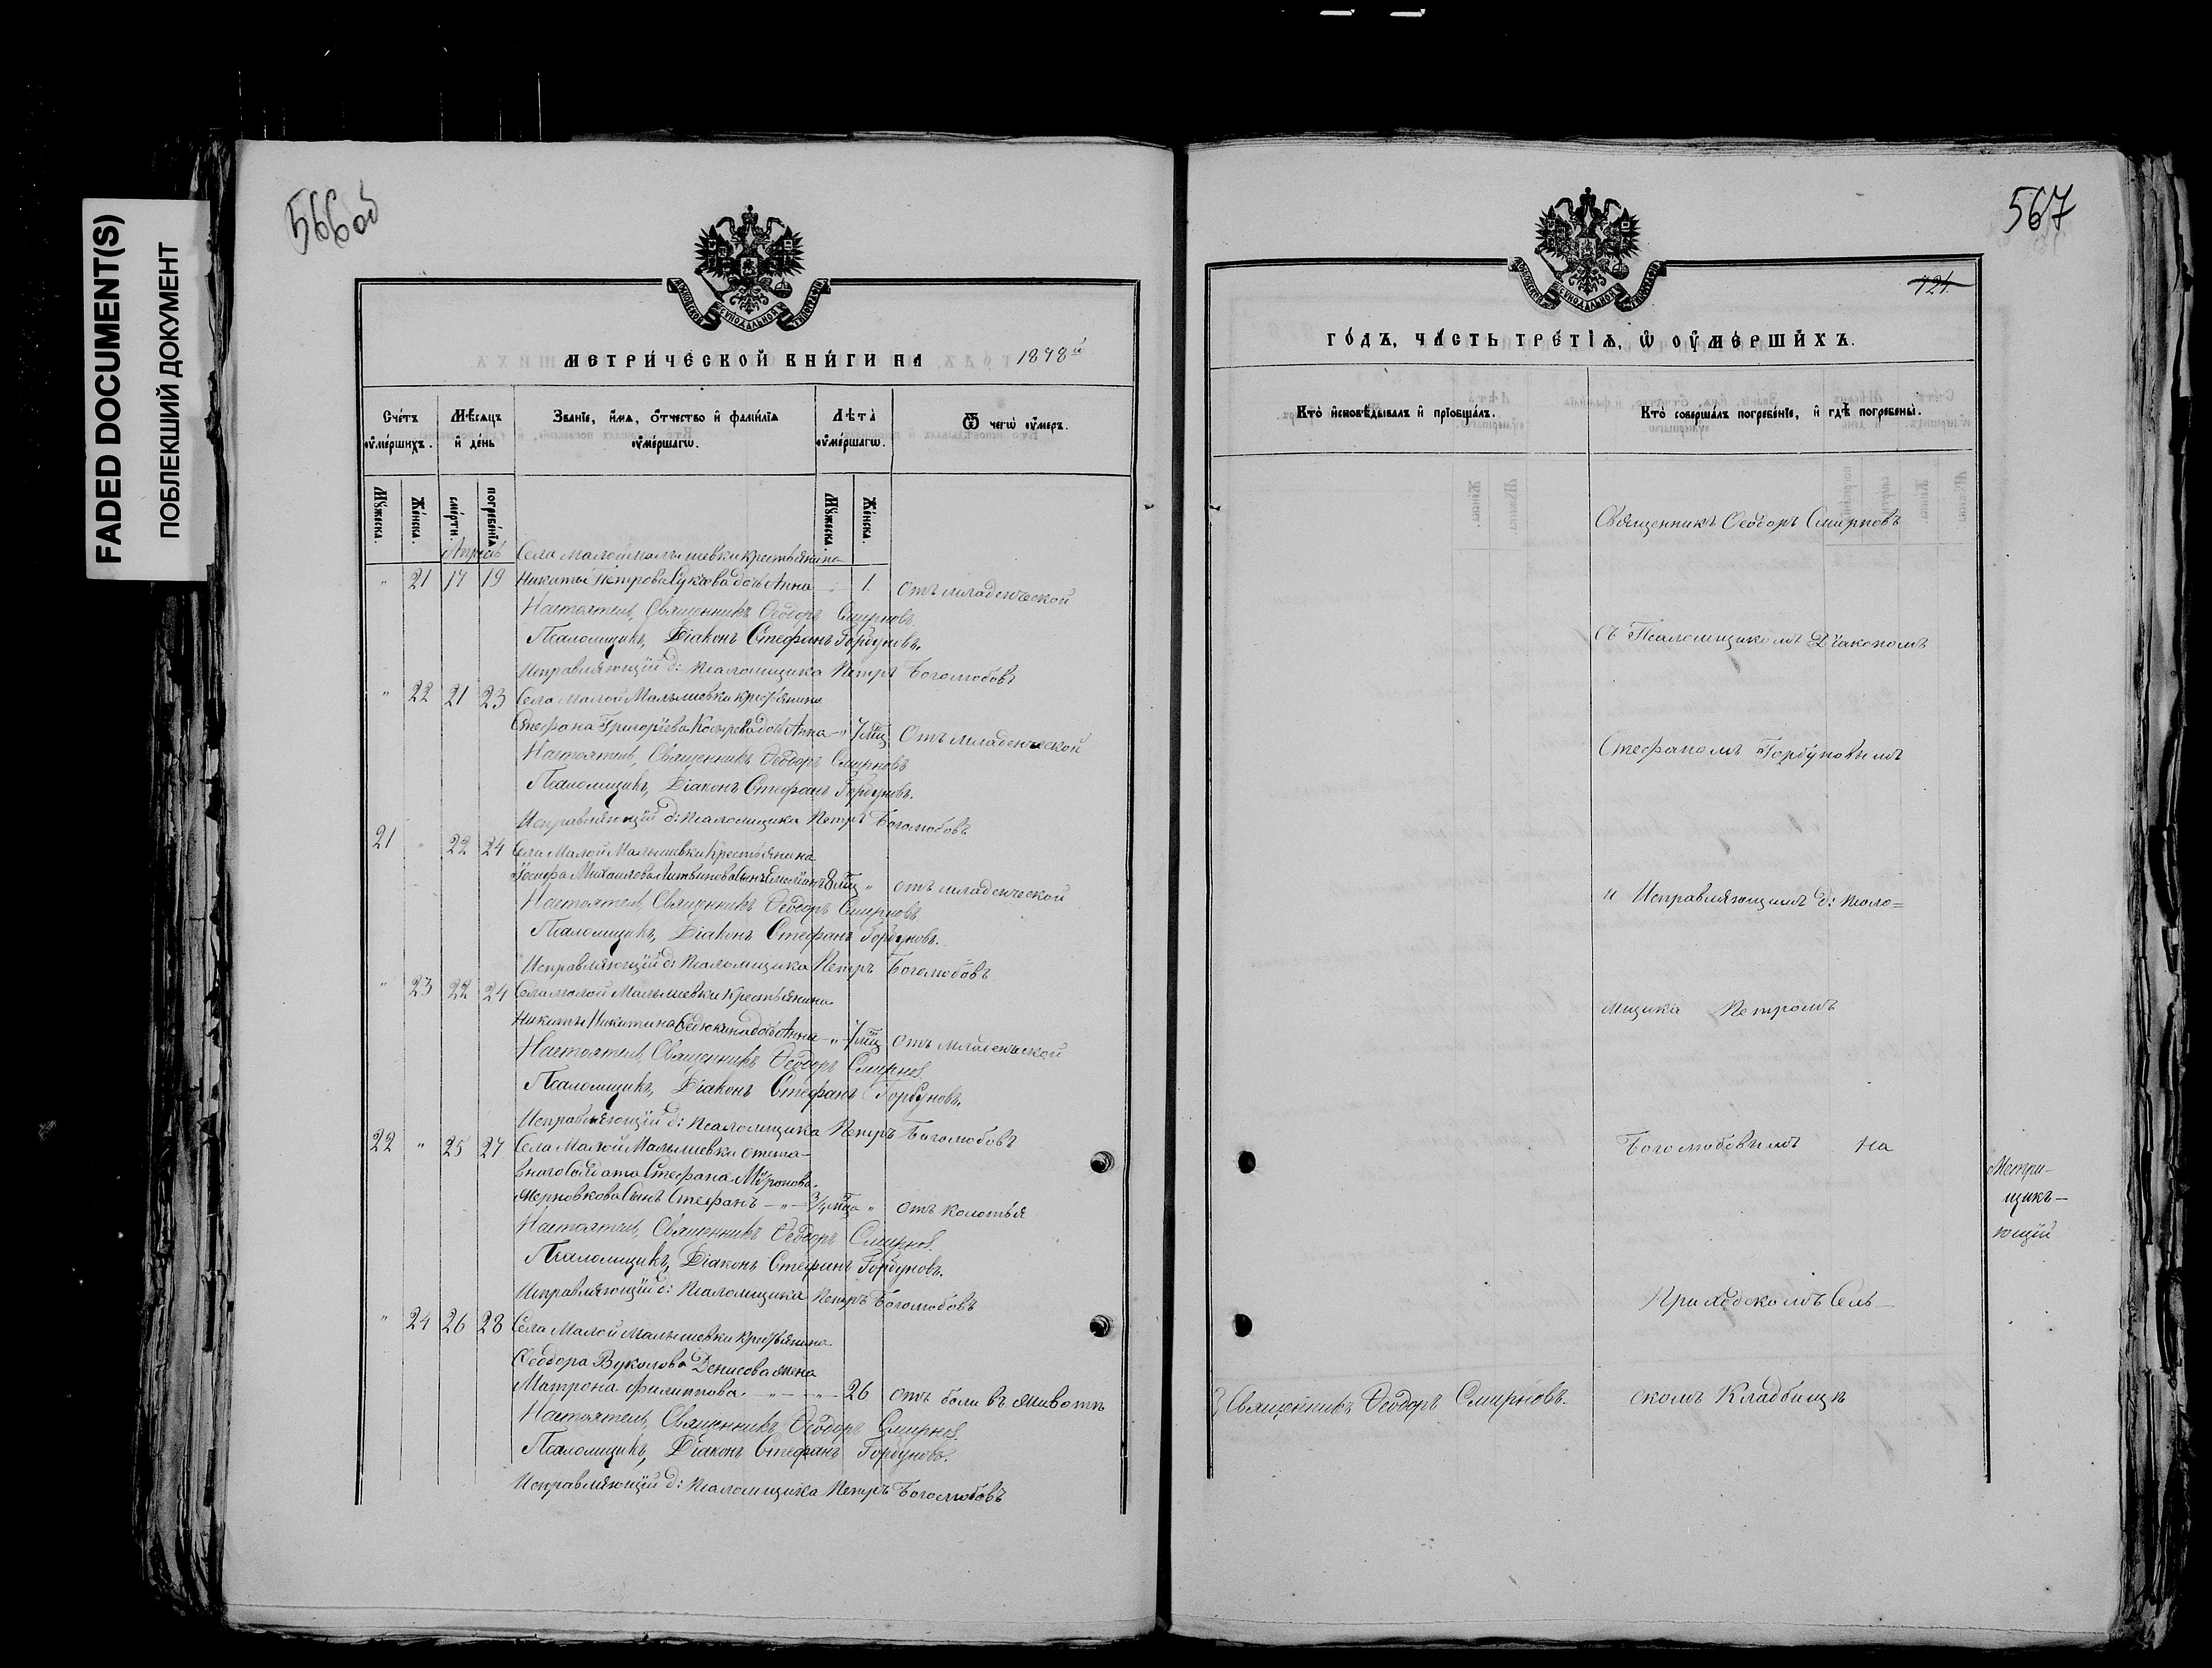 FADED DOCUMENT(S)
ПОБЛЕКШИЙ ДОКУМЕНТ
566 об
МЕТРИ́ЧЕСКОЙ КНИ́ГИ НА 1878й
Сче́тъ оу҆ме́ршихъ.
Мѣ́сяцъ и҆ де́нь
Зва́нїе, и҆́мѧ, ѻ҆́тчество и҆ фами́лїѧ оу҆ме́ршагѡ.
Лѣта̀ оу҆ме́ршагѡ.
Ѿ чегѡ̀ оу҆́меръ.
Мꙋ́жеска.
Же́нска.
сме́рти.
погребе́нїѧ
Мꙋ́жеска
Же́нска.
Апрель Села Малой Малышевки крестьянина
" 21 17 19 Никиты Петрова дочь Анна 1. отъ младенческой
Настоятель, Священникъ Ѳеодоръ Смирновъ.
Псаломщикъ, Діаконъ Стефанъ Горбуновъ.
Исправляющій д: псаломщика Петръ Боголюбовъ
" 22 21 23 Села Малой Малышевки крестьянина
Стефана Григоріева Косырева дочь Анна " 7 мцъ Отъ младенческой
Настоятель, Священникъ Ѳеодоръ Смирновъ
Псаломщикъ, Діаконъ Стефанъ Горбуновъ.
Исправляющій д: псаломщика Петръ Боголюбовъ
21 " 22 24 Села Малой Малышевки крестьянина
Іосифа Михаилова Литвинова сынъ Емеліанъ 8 мцъ " отъ младенческой
Настоятель, Священникъ Ѳеодоръ Смирновъ
Псаломщикъ, Діаконъ Стефанъ Горбуновъ.
Исправляющій д: псаломщика Петръ Боголюбовъ
" 23 22 24 Села малой Малышевки крестьянина
Никиты Никитина дочь Анна " 7 мцъ отъ младенческой
Настоятель, Священникъ Ѳеодоръ Смирнов
Псаломщикъ, Діаконъ Стефанъ Горбуновъ.
Исправляющій д: псаломщика Петръ Боголюбовъ
22 " 25 27 Села Малой Малышевки отста-
внаго Солдата Стефана Мѵронова
сынъ Стефанъ – " – 3/4 мца " отъ колотья
Настоятель, Священникъ Ѳеодоръ Смирнов.
Псаломщикъ, Діаконъ Стефанъ Горбуновъ.
Исправляющій д: псаломщика Петръ Боголюбовъ
" 24 26 28 Села Малой Малышевки крестьянина
Ѳеодора Вуколова Денисова жена
Матрона Филиппова. – " – " – 26 отъ боли въ животѣ
Настоятель, Священникъ Ѳеодоръ Смирнов.
Псаломщикъ, Діаконъ Стефанъ Горбуновъ.
Исправляющій д: псаломщика Петръ Боголюбовъ
567
721.
ГО́ДЪ, ЧА́СТЬ ТРЕ́ТЇѦ, Ѡ҆ ОУ҆МЕ́РШИХЪ.
Кто̀ и҆сповѣ́дывалъ и҆ прїѡбща́лъ.
Кто̀ соверша́лъ погребе́нїе, и҆ гдѣ̀ погребены̀.
Священникъ Ѳеодоръ Смирновъ
съ Псаломщикомъ Діакономъ
Стефаномъ Горбуновымъ
и Исправляющимъ д: псало=
мщика Петромъ
Боголюбовымъ на
Приходскомъ Сель-
Священникъ Ѳеодоръ Смирновъ. скомъ Кладбищѣ
Метри-
щикъ-
ющій